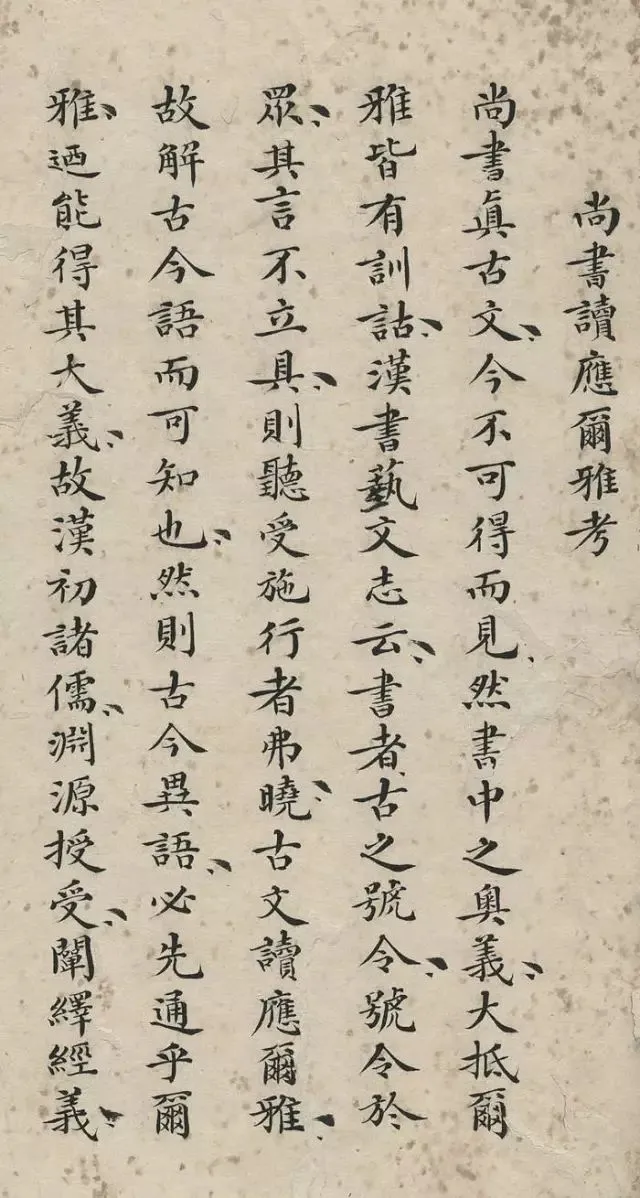 尚書讀應爾雅考
尚書眞古文、今不可得而見、然書中之奧義、大抵爾
雅皆有訓詁、漢書藝文志云、書者、古之號令、號令於
眾、其言不立具、則聽受施行者弗曉、古文讀應爾雅、
故解古今語而可知也、然則古今異語、必先通乎爾
雅、迺能得其大義、故漢初諸儒、淵源授受、闡繹經義、